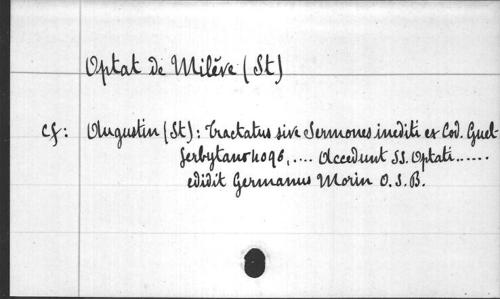 Optat de Milève (St)
cf: Augustin (St): Tractatus sive Sermones inediti ex Cod. Guel-
ferbytano 4096, .... Accedunt SS. Optati ......
edidit Germanus Morin O.S.B.